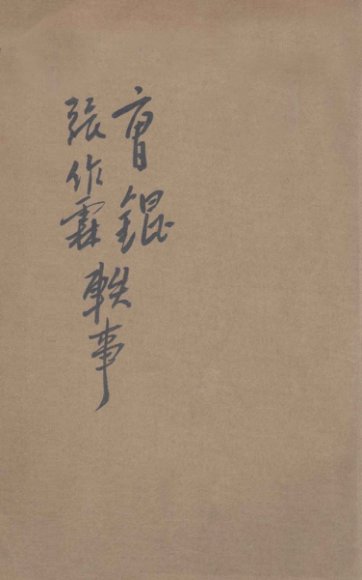 曹錕
張作霖軼事